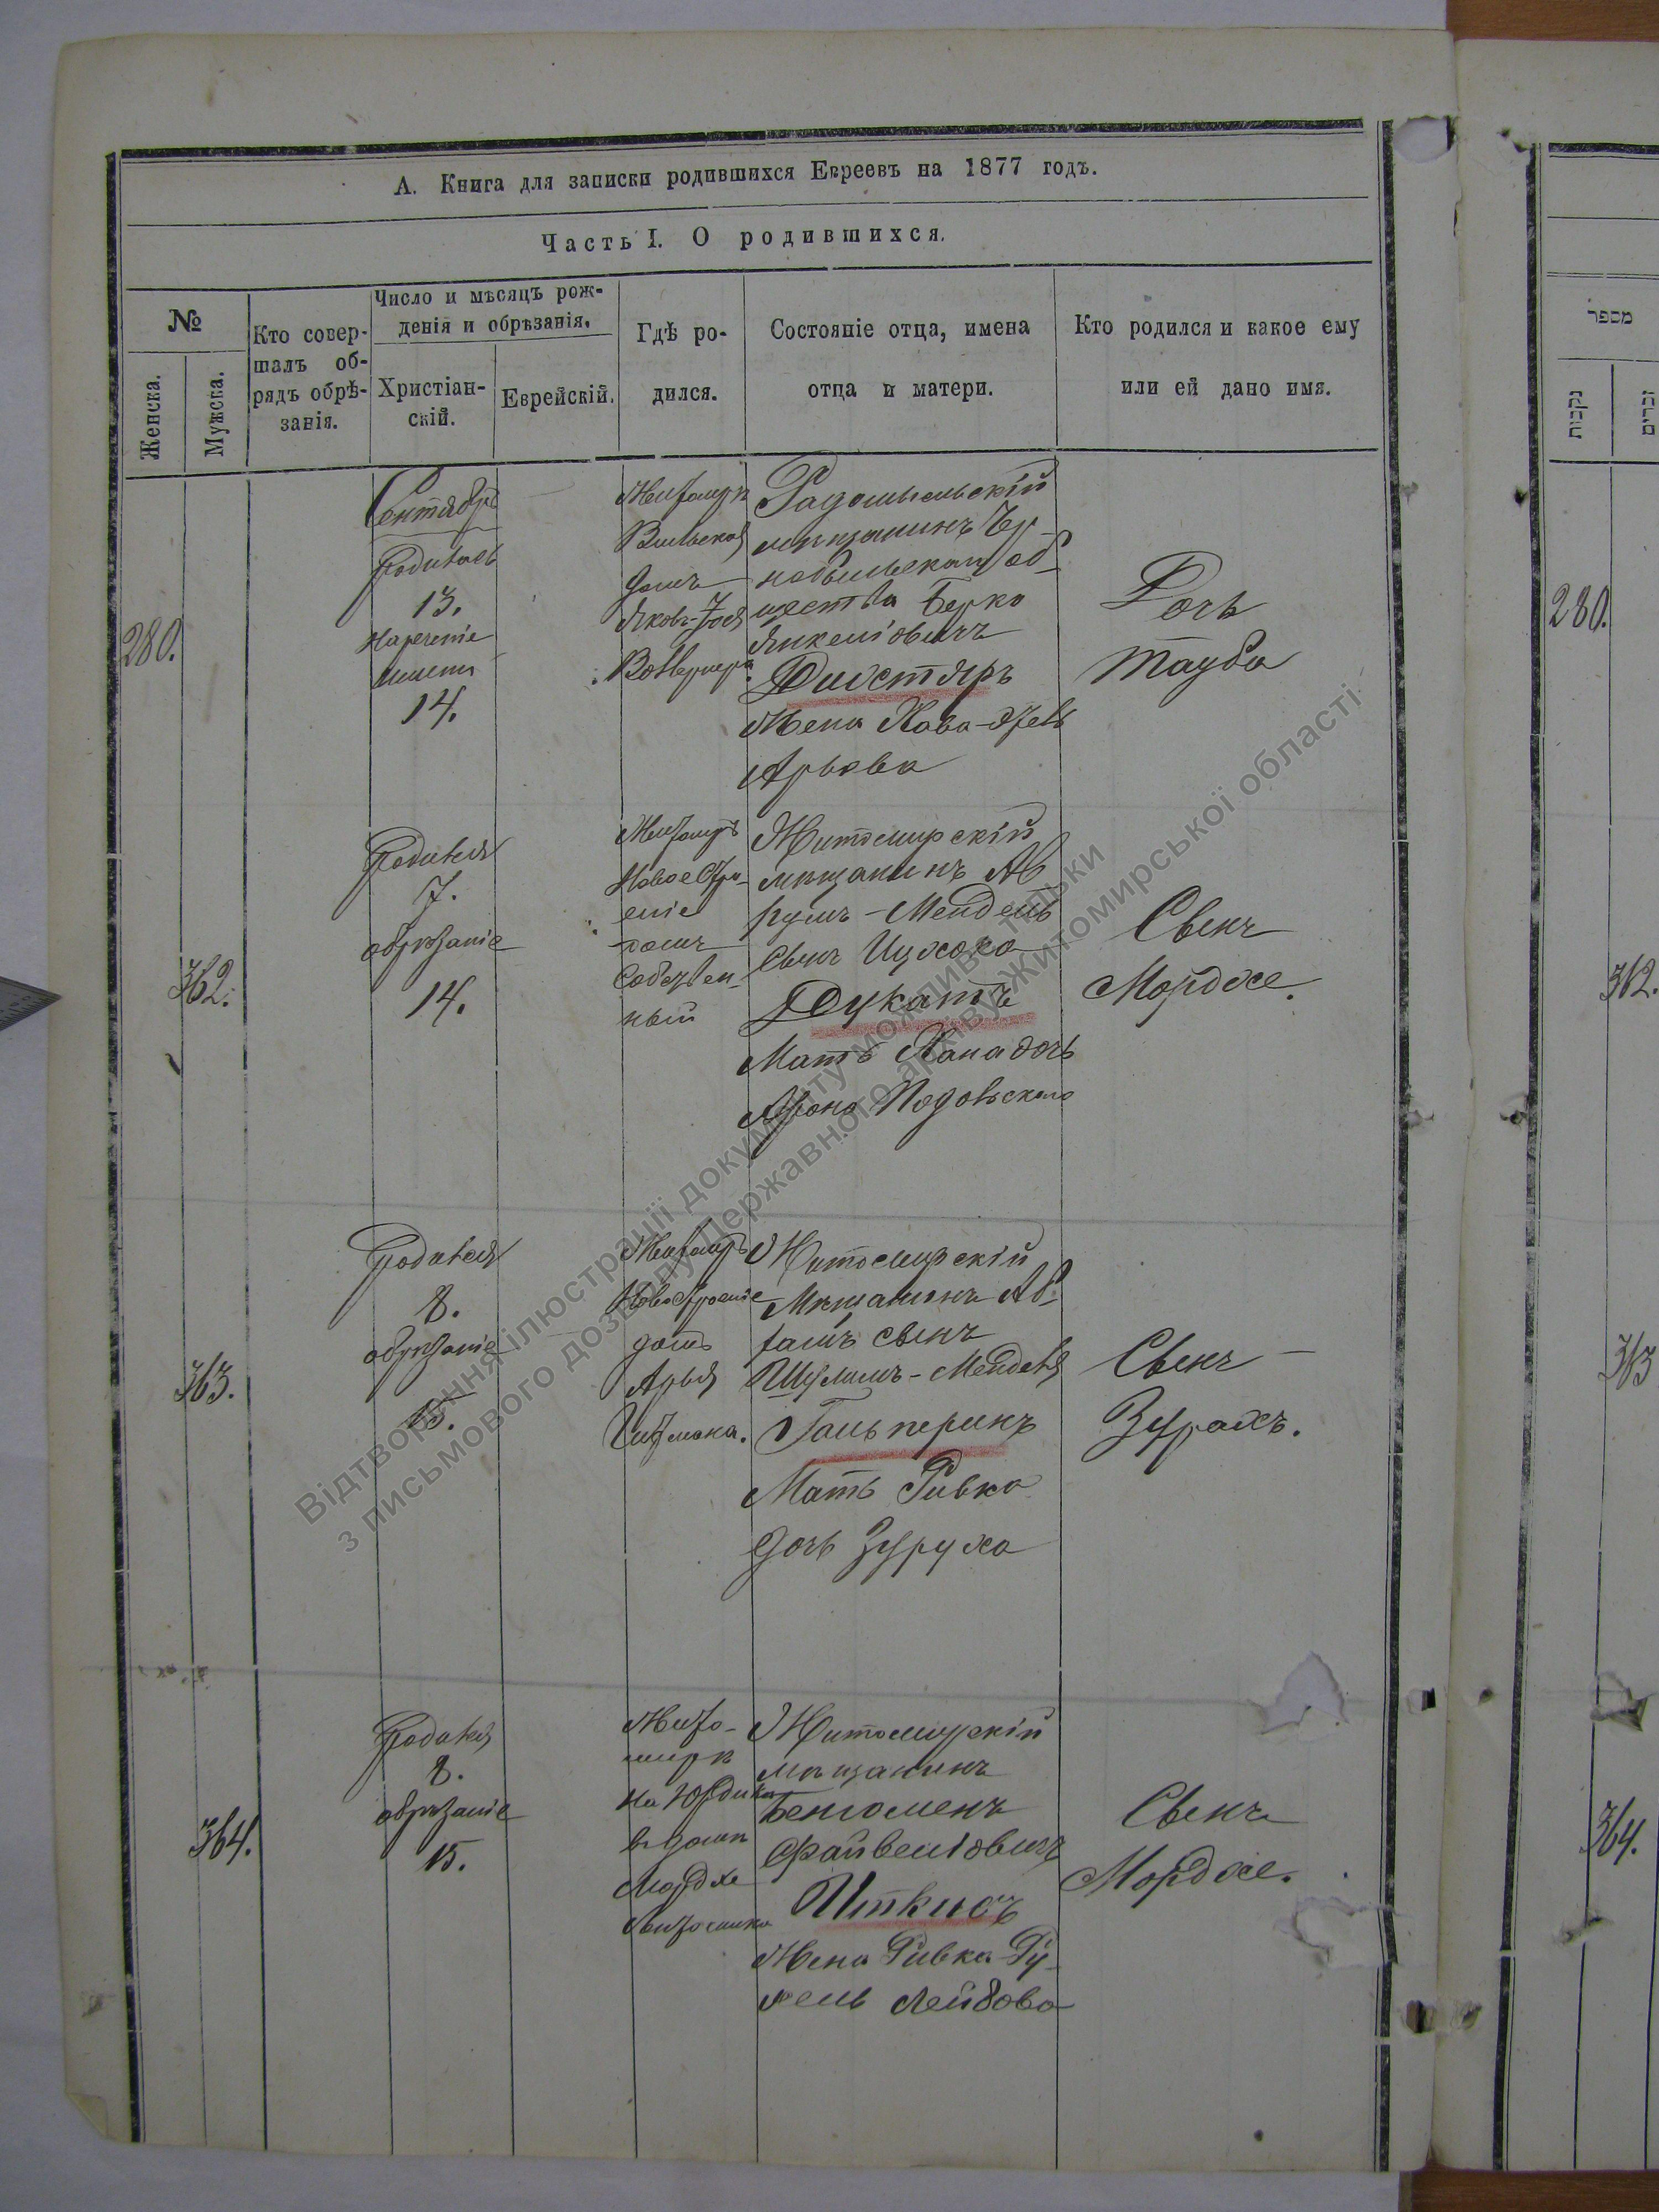 А. Книга для записки родившихся Евреевъ на 1877 годъ.
Часть I. О родившихся.
№
Женска.
Мужска.
Кто совер-
шалъ об-
рядъ обрѣ-
занія.
Число и мѣсяцъ рож-
денія и обрѣзанія.
Христіан-
скій.
Еврейскій.
Гдѣ ро-
дился.
Состояніе отца, имена
отца и матери.
Кто родился и какое ему
или ей дано имя.
280.
Сентябрь
Родилась
13.
Нареченіе
имени
14.
Житомиръ
Вильская
домъ
Радомысльскій
мѣщанинъ Чер-
нобыльскаго об-
щества Берко
Янкеліовичъ
Диестяръ
Жена Хава
Арьова
Дочь
Тауба
362.
Родился
7.
обрѣзаніе
14.
Житомиръ
Новое Стро-
еніе
домъ
Собствен-
ный
Житомирскій
мѣщанинъ Ав
румъ-Мендель
Сынъ Цухока
Дукатъ
Мать Хана дочь
Арона
Сынъ
Мордхе.
363.
Родился
8.
обрѣзаніе
15.
Житомиръ
Новостроеніе
домъ
Арья
Житомирскій
Мѣщанинъ Аб-
рамъ сынъ
Шулимъ-Менделя
Гальперинъ
Мать Ривка
дочь Зуруха
Сынъ
Зурахъ.
364.
Родился
8.
обрѣзаніе
15.
Жито-
миръ
на Юрдика
въ домѣ
Мордхе
Житомирскій
мѣщанинъ
Беніоменъ
Файвеліовичъ
Иткисъ
Жена Ривка-Ру-
хель Лейбова
Сынъ
Мордхе.
מספר
נקבות
זכרים
280.
362.
363
364.
Відтворення ілюстрації документу можливе тільки
з письмового дозволу Державного архіву Житомирської області